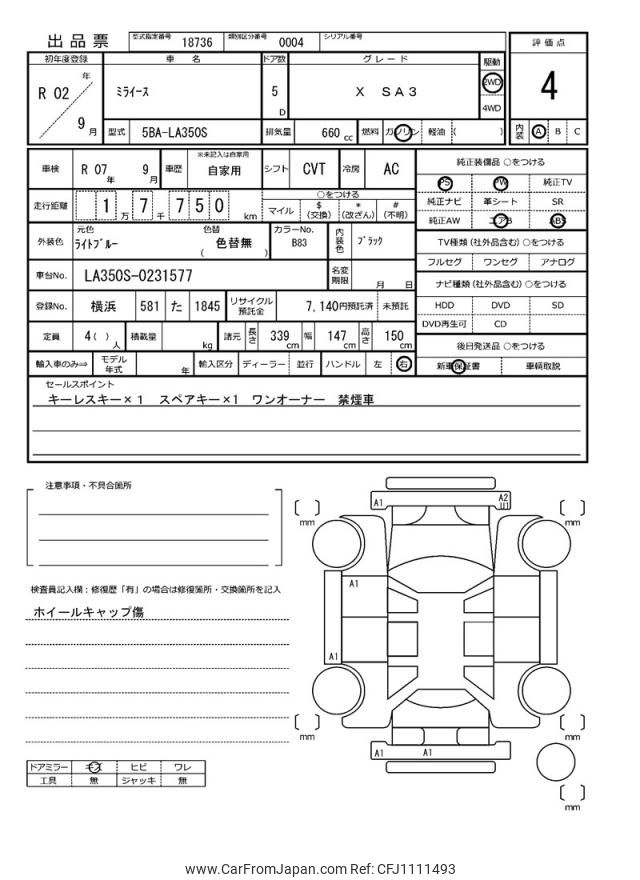 出品票 型式指定番号 18736 類別区分番号 0004 シリアル番号
評価点
4
初年度登録 車 名 ドア数 グレード 駆動
R 02 年 9 月
ミライース
5 D
X SA3
2WD
4WD
型式 5BA-LA350S 排気量 660 cc 燃料 ガソリン 軽油 ( )
内装 A B C
車検 R 07 年 9 月 車歴 ※未記入は自家用 自家用 シフト CVT 冷房 AC
走行距離 1 万 7 千 7 5 0 km
○をつける
マイル $(交換) *(改ざん) #(不明)
外装色 元色 ライトブルー 色替 ( 色替無 ) カラーNo. B83 内装色 ブラック
車台No. LA350S-0231577 名変期限 月 日
登録No. 横浜 581 た 1845 リサイクル預託金 7,140円預託済 未預託
定員 4( ) 人 積載量 kg 諸元 長さ 339 cm 幅 147 cm 高さ 150 cm
輸入車のみ⇒ モデル年式 年 輸入区分 ディーラー 並行 ハンドル 左 右
純正装備品 ○をつける
PS PW 純正TV
純正ナビ 革シート SR
純正AW エアB ABS
TV種類 (社外品含む) ○をつける
フルセグ ワンセグ アナログ
ナビ種類 (社外品含む) ○をつける
HDD DVD SD
DVD再生可 CD
後日発送品 ○をつける
新車保証書 車輌取説
セールスポイント
キーレスキー×1 スペアキー×1 ワンオーナー 禁煙車
注意事項・不具合箇所
検査員記入欄：修復歴「有」の場合は修復箇所・交換箇所を記入
ホイールキャップ傷
ドアミラー キズ ヒビ ワレ
工具 無 ジャッキ 無
A1 A2
U1
mm mm
A1
A1
mm mm
A1 A1
mm
www.CarFromJapan.com Ref: CFJ1111493